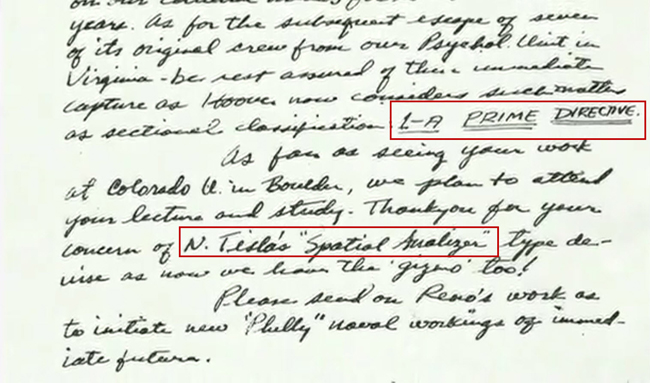 years. As for the subsequent escape of seven
of its original crew from our Psychol. Unit in
Virginia - be rest assured of their immediate
capture as Hoover now considers such matter
as sectional classification 1-A PRIME DIRECTIVE.
As far as seeing your work
at Colorado U. in Boulder, we plan to attend
your lecture and study. Thankyou for your
concern of N. Tisla's "Spatial Analizer" type de-
vise as now we have the 'gizmo' too!
Please send on Reno's work as
to initiate new "Philly" naval workings of immed-
iate future.